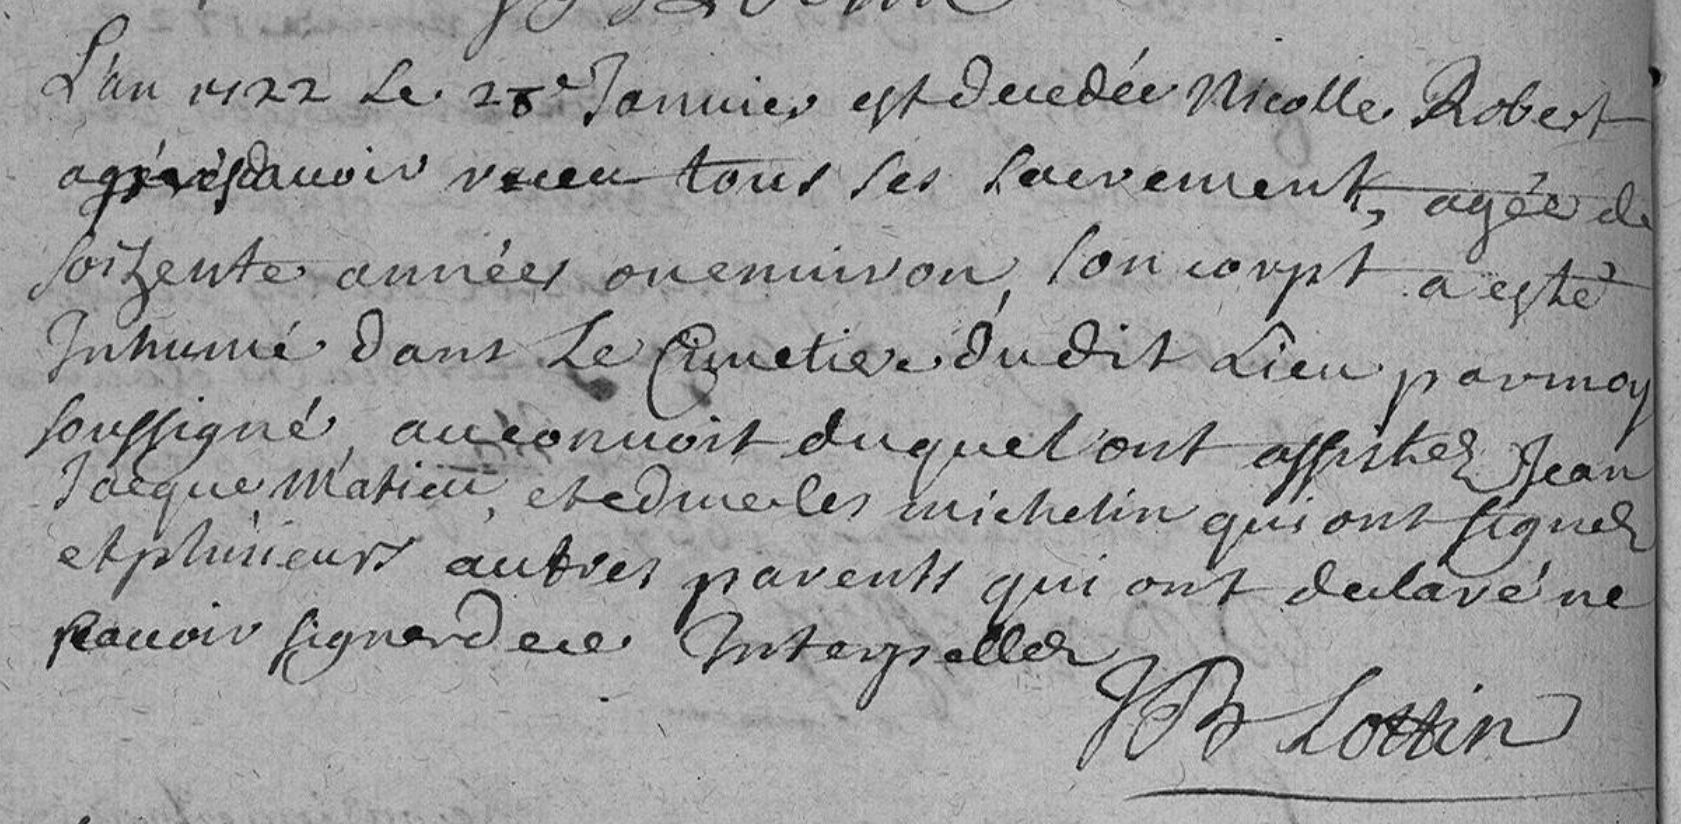 L'an 1722 le 28e Janvier est decedée Nicolle Robert
aprés davoir receu tous ses sacrement, agée de
soizente années ou environ, son corpt a esté
Inhumé dans Le Cimetiere dudit Lieu par moy
soussigné, au convoit duquel ont assistez Jean
Jacque Matieu, et edme les michelin qui ont signez
et plusieurs autres parents qui ont declaré ne
scavoir signer de ce Interpellez
JB Lottin